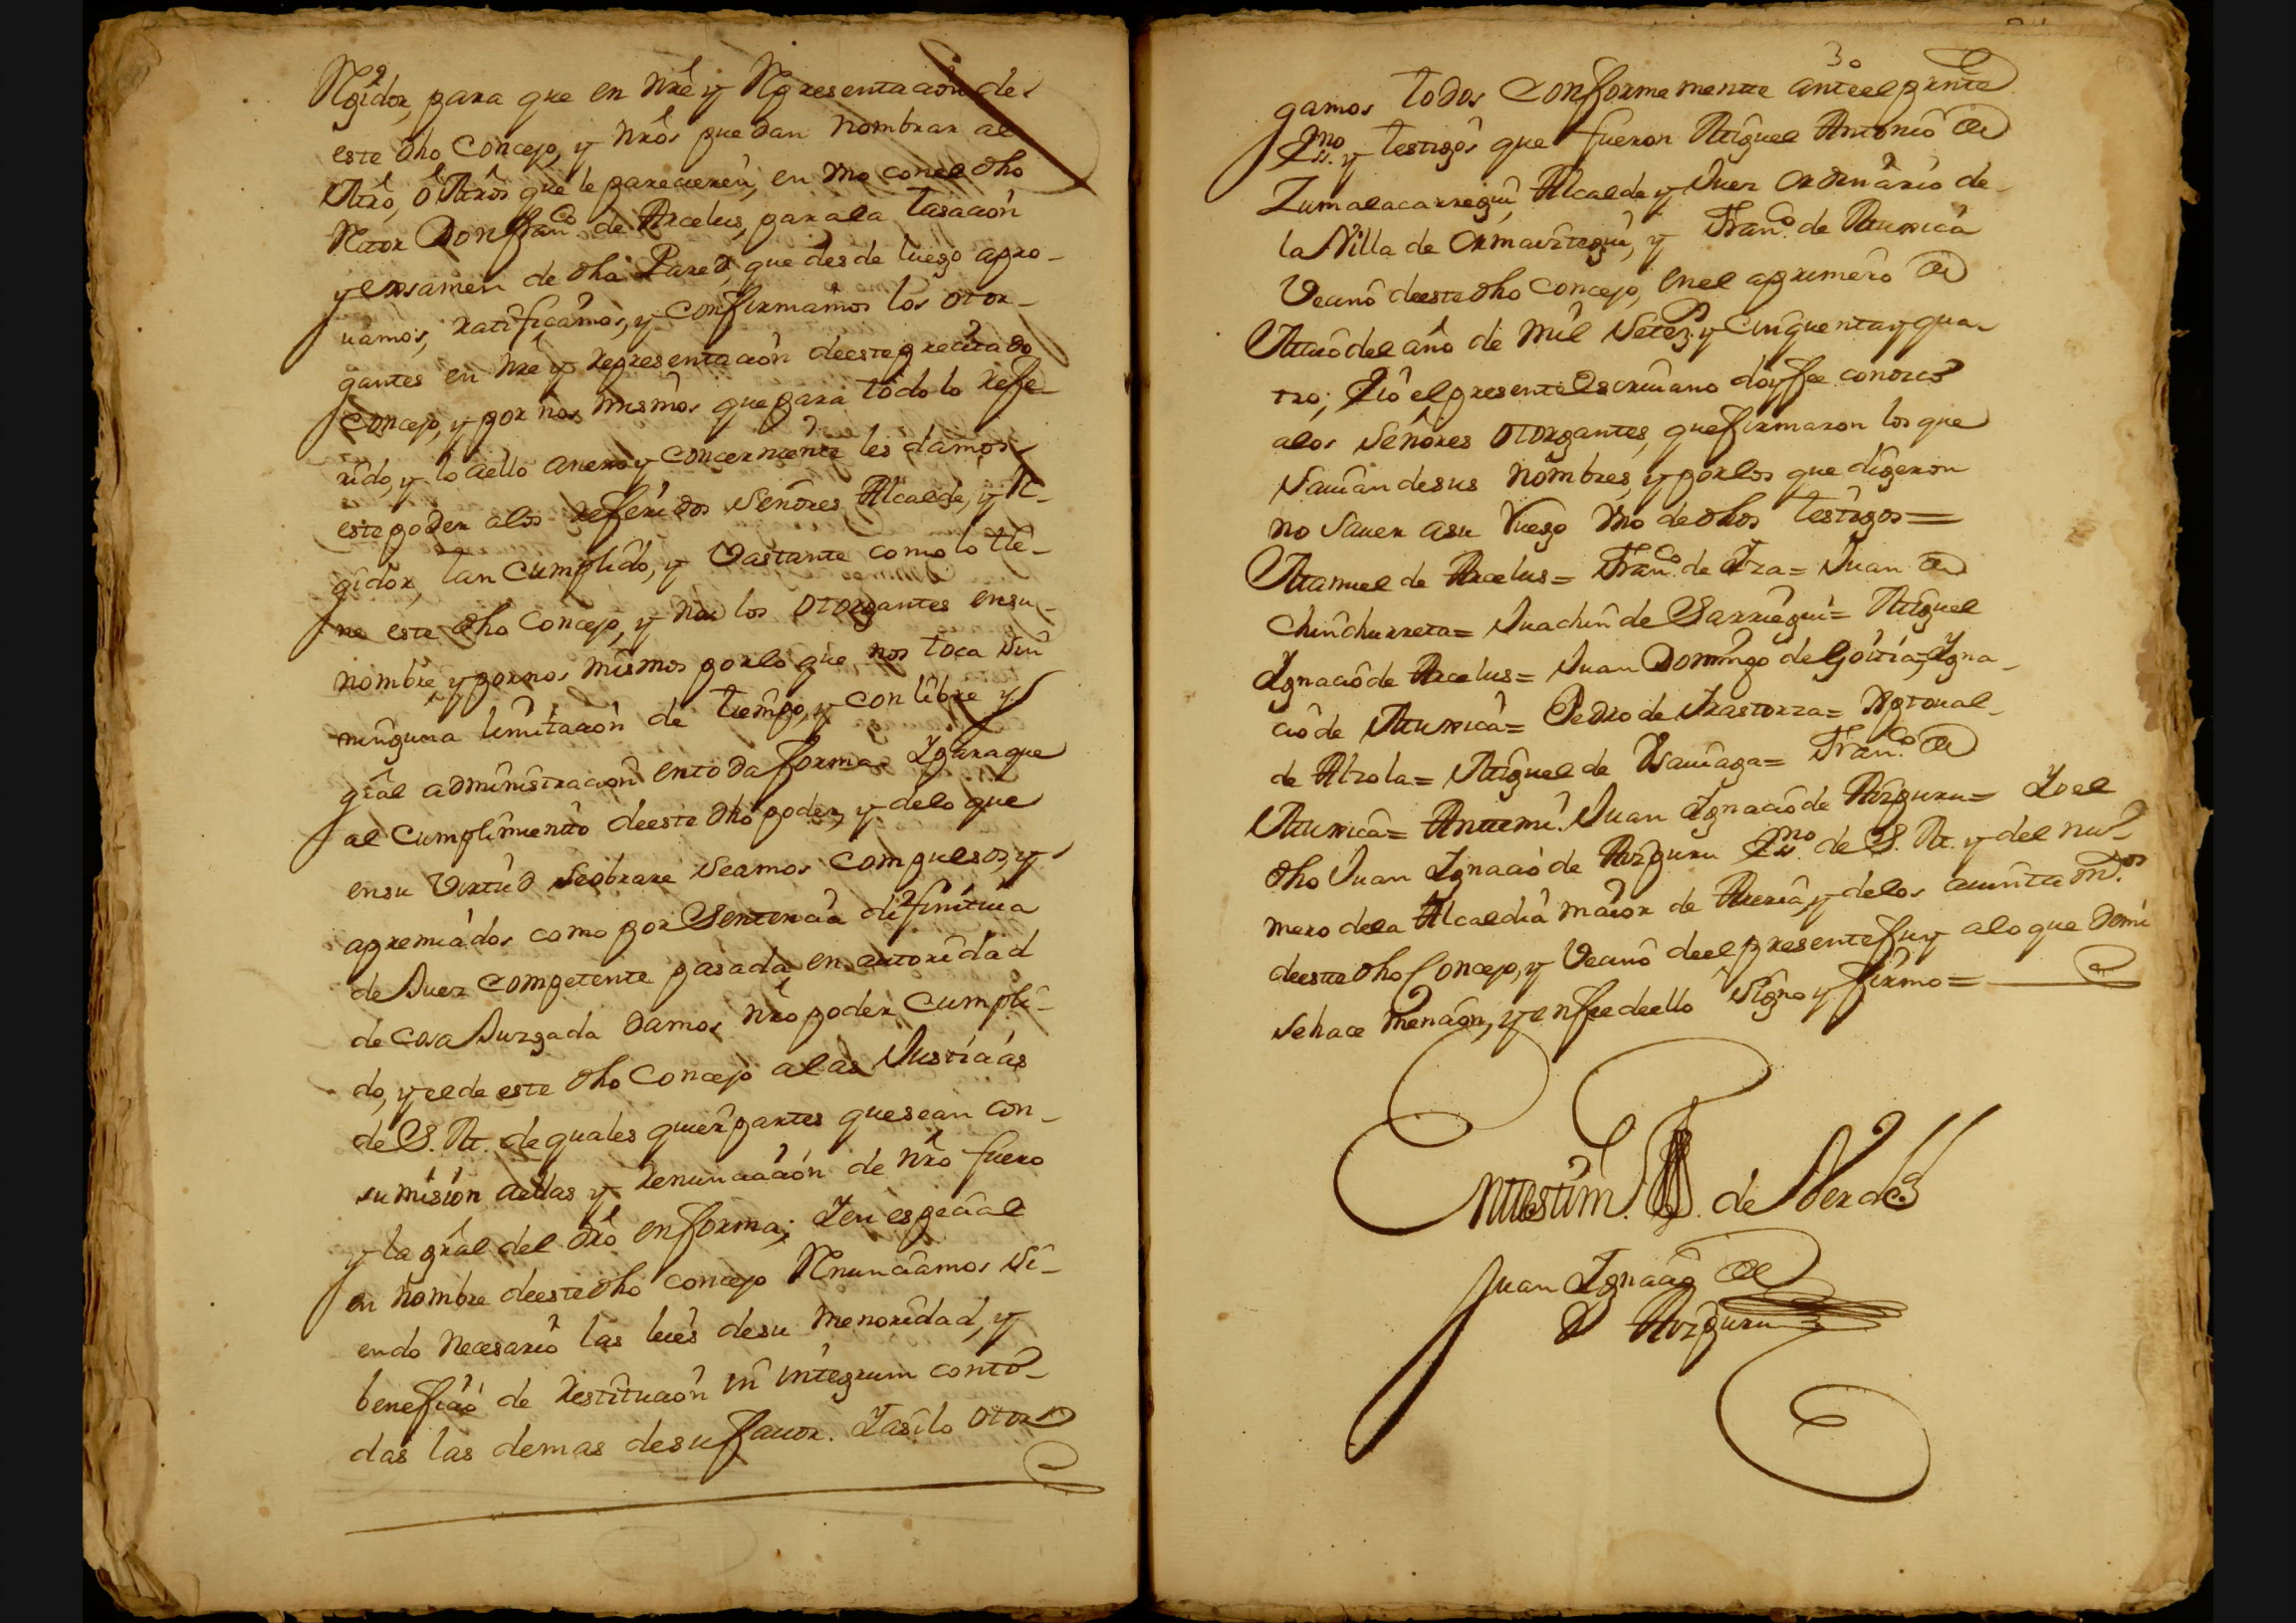 Regidor, para que en nre y Representacion de
este dho Concejo, y nrôs puedan nombrar al
Mrô, ô Mrôs que le parecieren, en uno con el dho
Rtor Don Fran.co de Arcelus, para la tasacion
y exsamen de dha Pared, que desde luego apro-
uamos, ratificamos, y confirmamos los otor-
gantes en nre y representacion de este precitado
Concejo, y por nos mismos que para todo lo refe-
rido, y lo aello anexo y concerniente les damos
este poder alos referidos Señores Alcalde, y Re-
gidor, tan cumplido, y Vastante como lo tie-
ne este dho Concejo, y nos los otorgantes en su
nombre, y por nos mismos por lo que nos toca sin
ninguna limitacion de tiempo, y con libre y
gral administracion en toda forma. Y para que
al cumplimiento de este dho poder, y delo que
en su Virtud se obrare seamos compulsos, y
apremiados como por Sentencia difinitiua
de Juez competente pasada en autoridad
de cosa Juzgada damos nrô poder cumpli-
do, y el de este dho Concejo alas Justicias
de S. M. de quales quier partes que sean con
sumision aellas y renunciacion de nrô fuero
y la gral del drô en forma; Y en especial
en nombre de este dho concejo Renunciamos si-
endo necesario las leies de su menoridad, y
beneficio de restitucion in integrum con to-
das las demas de su fauor. Y asi lo otor
30
gamos todos conformemente ante el prnte
Ss.no y testigos que fueron Miguel Antonio de
Zumalacarregui, Alcalde y Juez ordinario de
la Villa de Ormaiztegui, y Fran.co de Mumica
Vecino de este dho Concejo, en el a primero de
Maio del año de mil Setez.s y cinquenta y qua-
tro; Yo el presente Escriuano doy fee conozco
alos Señores otorgantes, que firmaron los que
sauian de sus nombres, y por los que digeron
no sauer a su ruego uno de dhos testigos =
Manuel de Arcelus = Fran.co de Yza = Juan de
Chinchurreta = Juachin de Sarriegui = Miguel
Ygnacio de Arcelus = Juan Domingo de Goitia = Ygna-
cio de Mumica = Pedro de Irastorza =
de Alzola = Miguel de = Fran.co de
Mumica = Ante mi. Juan Ygnacio de Aizpuru = Yo el
dho Juan Ygnacio de Aizpuru Ss.no de S. M. y del nu-
mero dela Alcaldia maior de Areria, y delos aiuntam.tos
de este dho Concejo, y Vecino de el presente fuy alo que de mi
se hace mencion, y en fee de ello signo y firmo =
En testim.o de Verdad
Juan Ygnacio de
Aizpuru